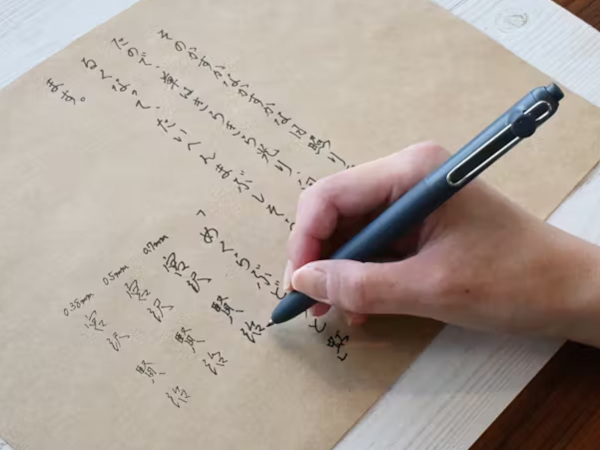 そのかすかなかすかな日照り
たので、草はきらきら光り、向
るくなって、たいへんまぶしそう
ます。
「めくらぶど と虹
0.7mm 宮沢賢治
0.5mm 宮沢賢治
0.38mm 宮沢賢治